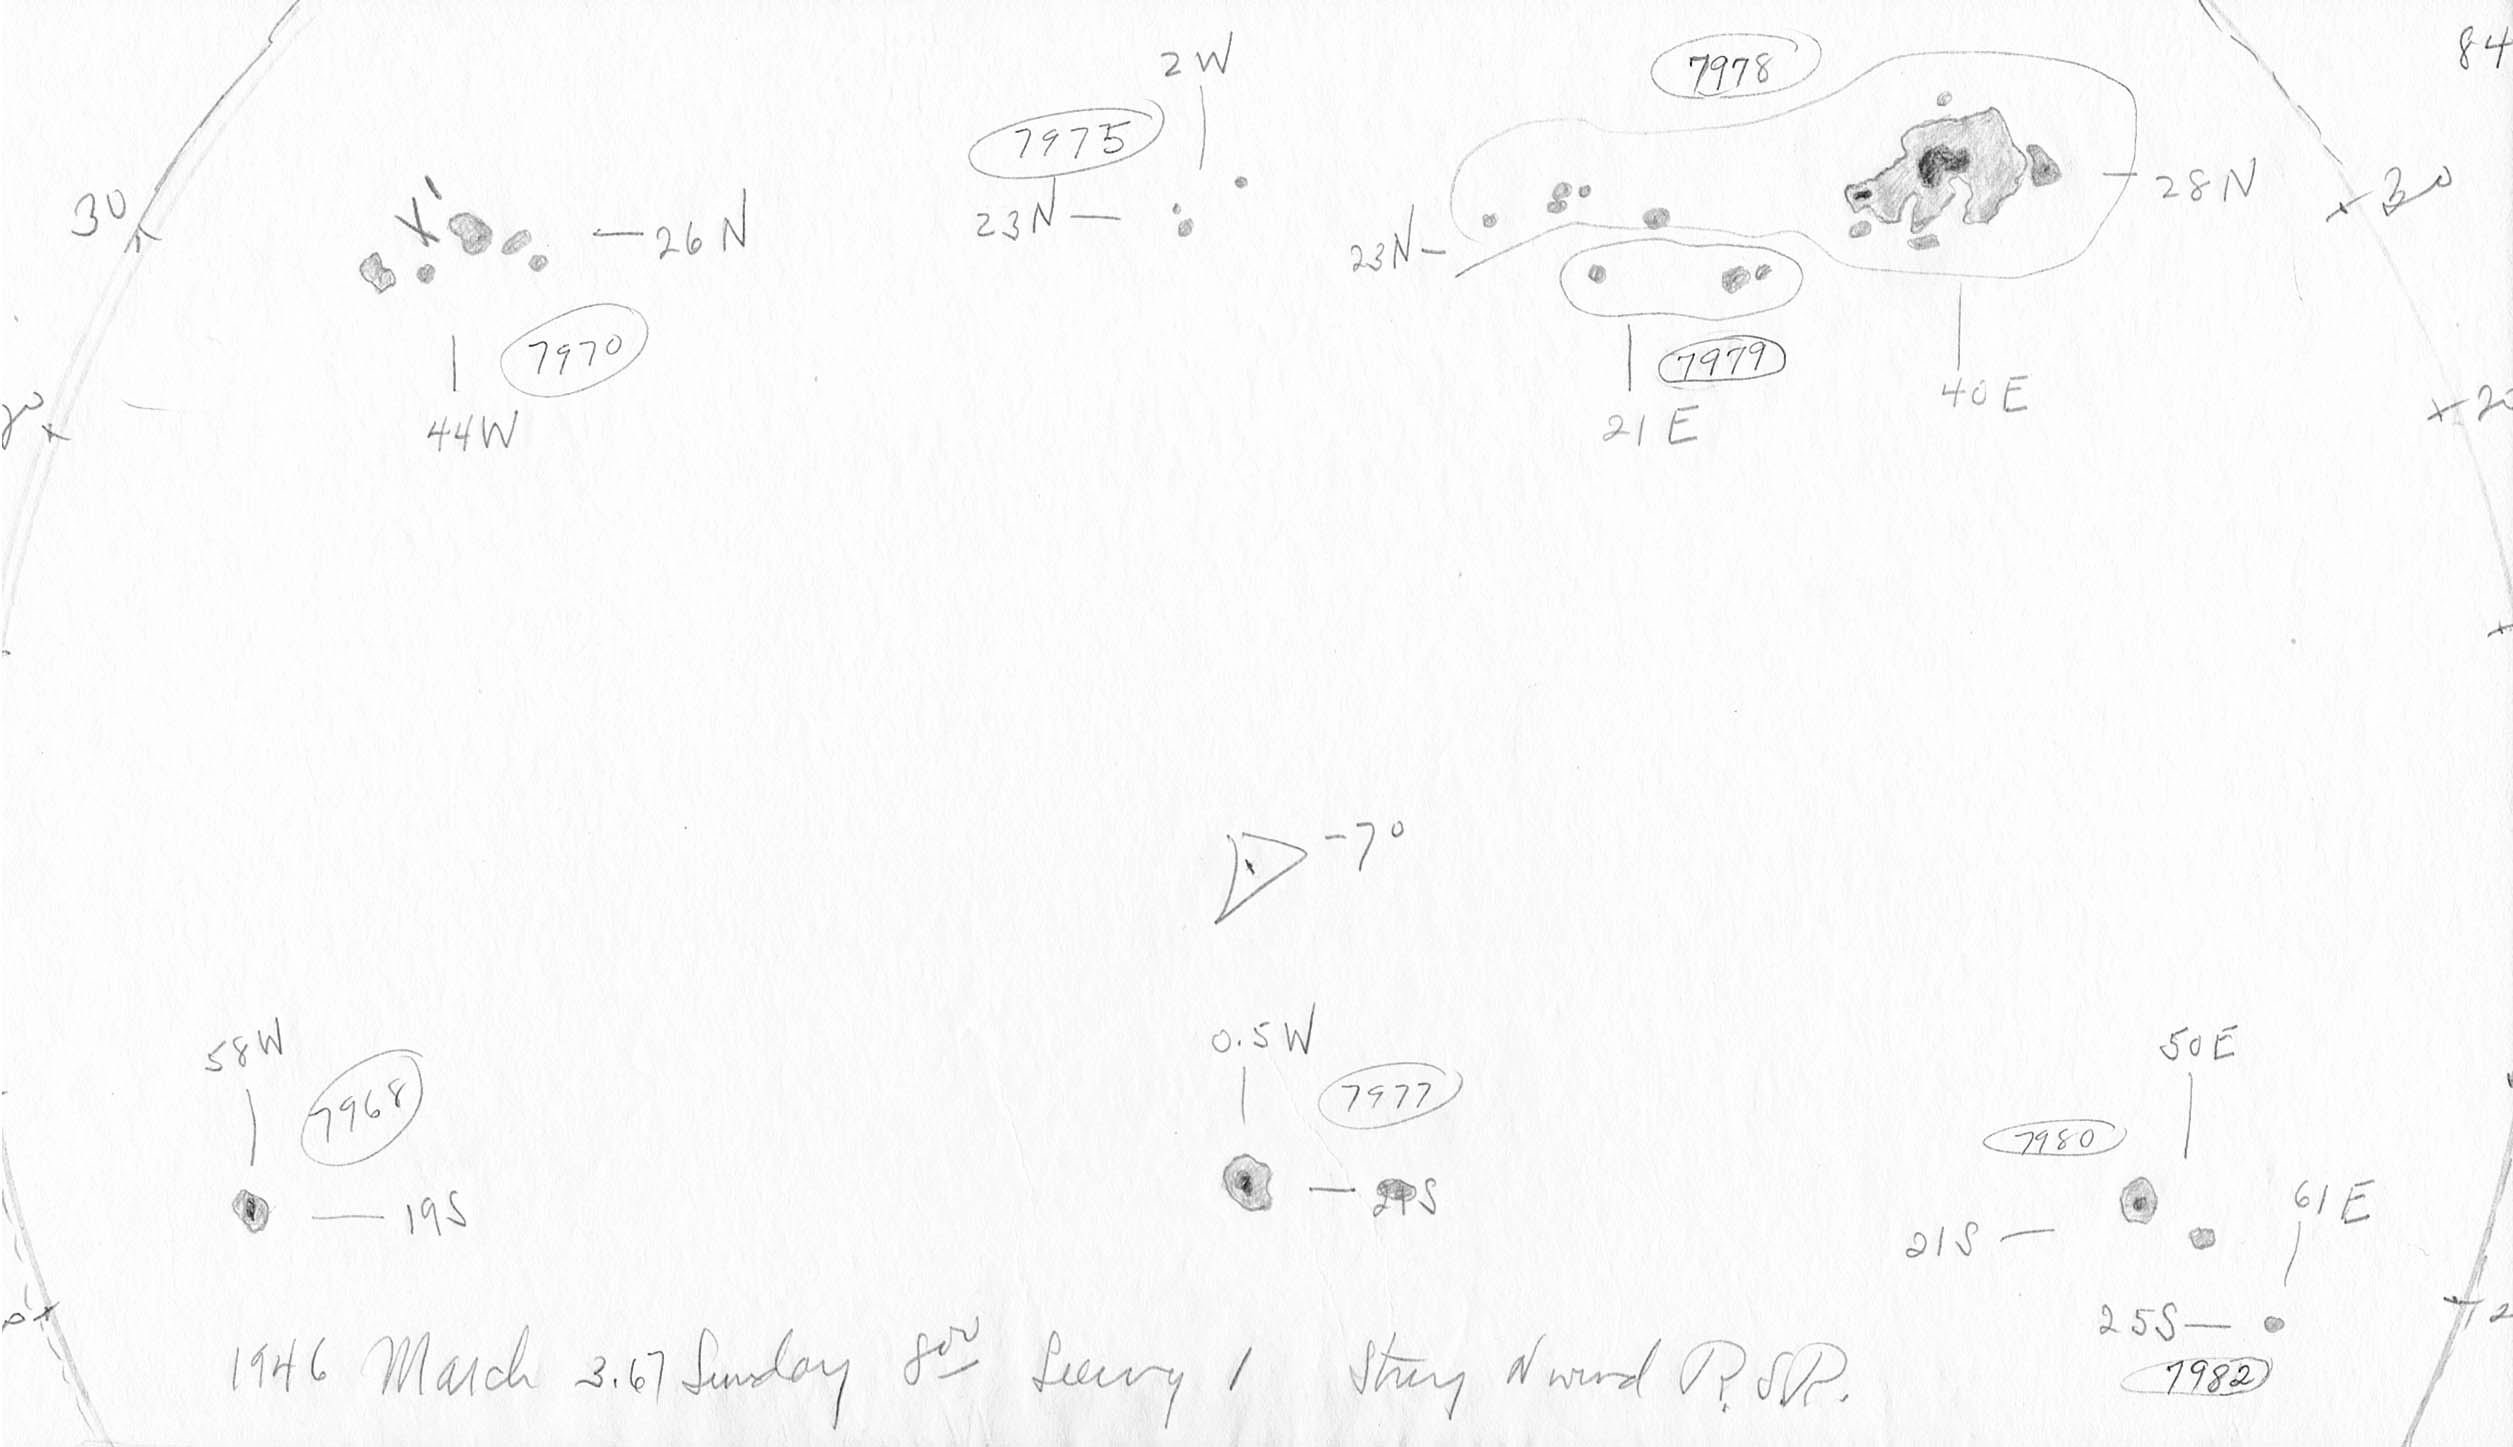 84
2W
7978
7975
30
26N
23N
28N
30
23N
7970
7979
44W
21E
40E
20
-7°
58W
0.5W
50E
7968
7977
7980
61E
19S
21S
25S
7982
1946 March 3.67 Sunday 8⁰⁰ Seeing 1 Strong N wind R.S.R.